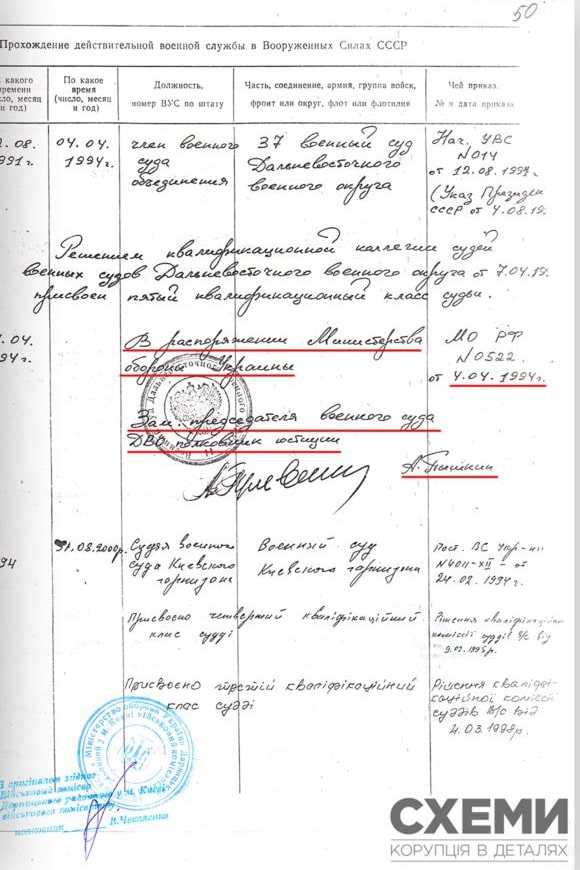 50
Прохождение действительной военной службы в Вооруженных Силах СССР
какого
времени
число, месяц
и год)
По какое
время
(число, месяц
и год)
Должность,
номер ВУС по штату
Часть, соединение, армия, группа войск,
фронт или округ, флот или флотилия
Чей приказ,
№ и дата приказа
.08.
1991г.
04.04.
1994г.
член военного
суда
объединения
37 военный суд
Дальневосточного
военного округа
Нач. УВС
N014
от 12.08.199
(Указ Президен
СССР от 4.08.19.
Решением квалификационной коллегии судей
военных судов Дальневосточного военного округа от 7.04.19.
присвоен пятый квалификационный класс судьи.
.04.
94г.
В распоряжении Министерства
обороны Украины
МО РФ
N0522
от 4.04.1994г.
Зам. председателя военного суда
ДВО полковник юстиции
А. Пушкин
94
31.08.2000р.
Судья военного
суда Киевского
гарнизона
Военный суд
Киевского гарнизона
Пост. ВС Укр-ны
N4011-XII - от
24.02.1994г.
Присвоєно четвертий кваліфікаційний
клас судді
Рішення кваліфікаційної
комісії суддів В/С від
9.02.1995р.
Присвоєно третій кваліфікаційний
клас судді
Рішення кваліфі-
каційної комісії
суддів В/С від
4.03.1998р.
З оригіналом згідно:
Військовий комісар
Дарницького районного у м. Києві
військового комісаріату
полковник
В.Четленко
СХЕМИ
КОРУПЦІЯ В ДЕТАЛЯХ